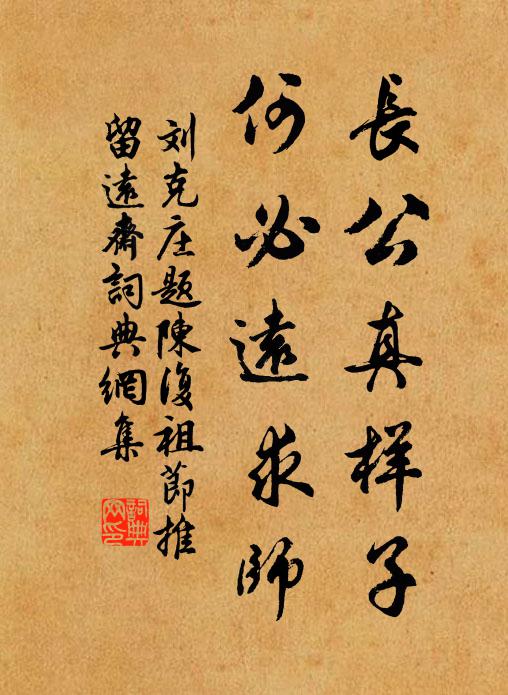 長公真样子
何必遠求師
刘克庄题陳復祖節推
留遠齋詞典網集
詞典网印